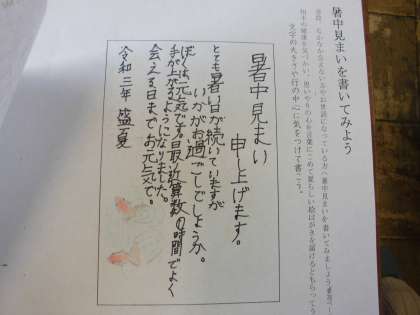 暑中見まいを書いてみよう
文字の大きさや行の中心に気をつけて書こう。
暑中見まい
申し上げます。
とても暑い日が続いていますが
いかがお過ごしでしょうか。
ぼくは、元気です。最近算数の時間でよく
手が上がるようになりました。
会える日までお元気で。
令和三年 盛夏